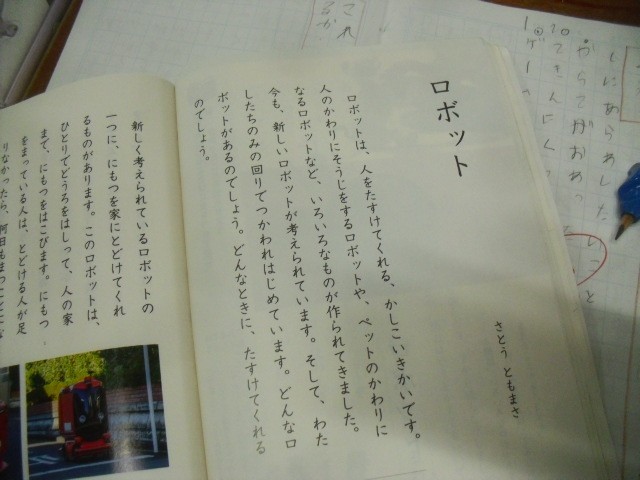 ロボット
さとう ともまさ
ロボットは、人をたすけてくれる、かしこいきかいです。
人のかわりにそうじをするロボットや、ペットのかわりに
なるロボットなど、いろいろなものが作られてきました。
今も、新しいロボットが考えられています。そして、わた
したちのみの回りでつかわれはじめています。どんなロ
ボットがあるのでしょう。どんなときに、たすけてくれる
のでしょう。
新しく考えられているロボットの
一つに、にもつを家にとどけてくれ
るものがあります。このロボットは、
ひとりでどうろをはしって、人の家
まで、にもつをはこびます。にもつ
をまっている人は、とどける人が足
りなかったら、何日もまつことにな
これ